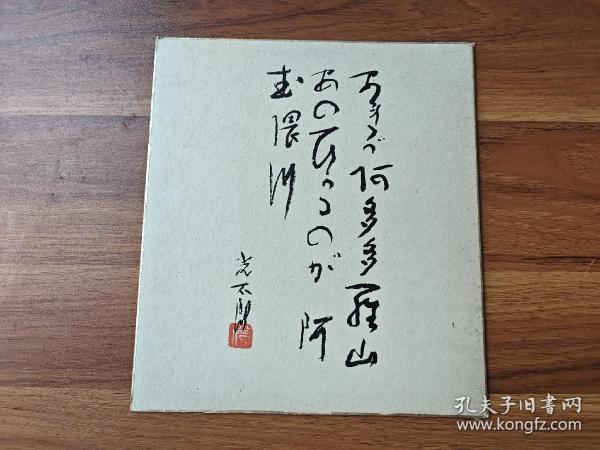 あれが阿多多羅山
あのひかるのが 阿
武隈川
光太郎
孔夫子旧書网
www.kongfz.com